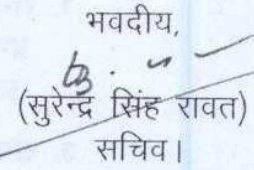 भवदीय,
(सुरेन्द्र सिंह रावत)
सचिव।